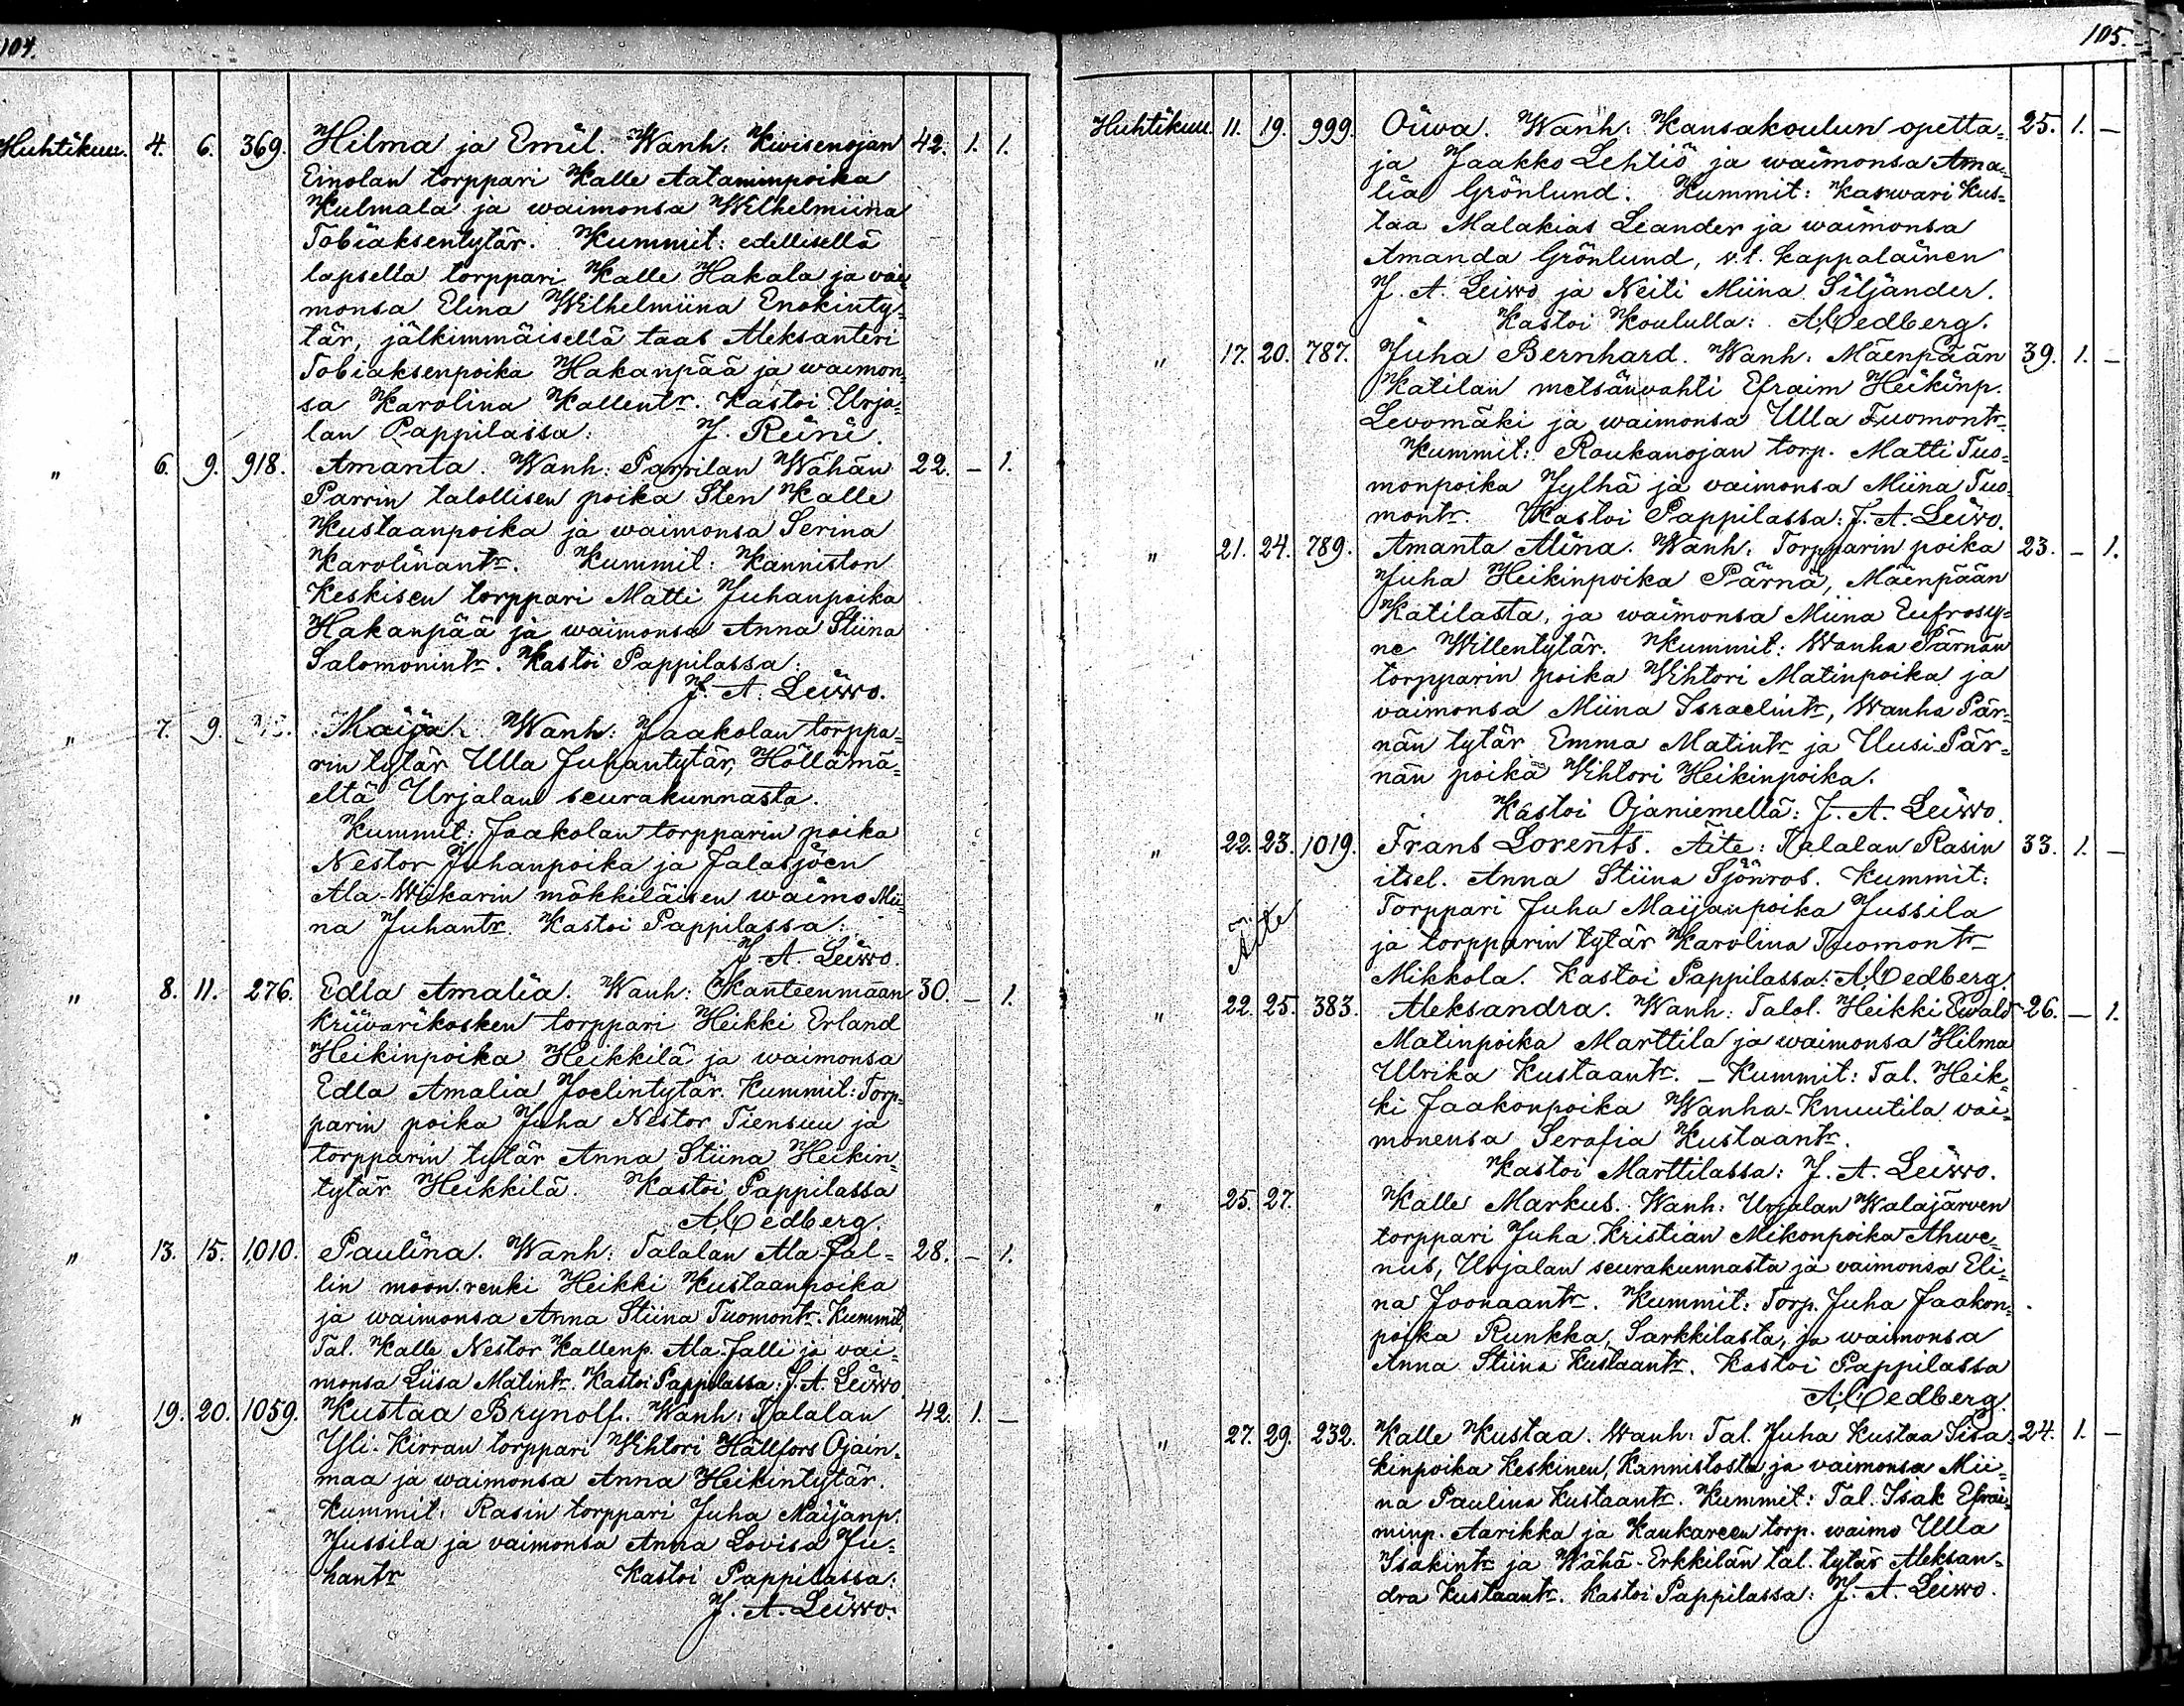 104.
Huhtikuu. 4. 6. 369. Hilma ja Emil. Wanh: Kivisenojan 42. 1. 1.
Einolan torppari Kalle Aataminpoika
Kulmala ja waimonsa Wilhelmiina
Tobiaksentytär. Kummit: edellisellä
lapsella torppari Kalle Hakala ja vai-
monsa Elina Wilhelmiina Enokinty-
tär, jälkimmäisellä taas Aleksanteri
Tobiaksenpoika Hakanpää ja waimon-
sa Karolina Kallentr. Kastoi Urja-
lan Pappilassa: J. Reini.
" 6. 9. 918. Amanta. Wanh: Parrilan Wähän 22. – 1.
Parrin talollisen poika Sten Kalle
Kustaanpoika ja waimonsa Serina
Karolinantr. Kummit: Kanniston
Keskisen torppari Matti Juhanpoika
Hakanpää ja waimonsa Anna Stiina
Salomonintr. Kastoi Pappilassa:
J. A. Leiwo.
" 7. 9. Maija. Wanh: Jaakolan torppa-
rin tytär Ulla Juhantytär, Höllämä-
eltä Urjalan seurakunnasta.
Kummit: Jaakolan torpparin poika
Nestor Juhanpoika ja Jalasjoen
Ala-Wiikarin mökkiläisen waimo Mii-
na Juhantr. Kastoi Pappilassa:
J. A. Leiwo.
" 8. 11. 276. Edla Amalia. Wanh: Kanteenmaan 30. – 1.
Kriivarikosken torppari Heikki Erland
Heikinpoika Heikkilä ja waimonsa
Edla Amalia Joelintytär. Kummit: Torp-
parin poika Juha Nestor Tiensuu ja
torpparin tytär Anna Stiina Heikin-
tytär Heikkilä. Kastoi Pappilassa
A. Cedberg.
" 13. 15. 1010. Paulina. Wanh: Talalan Ala-Jal- 28. – 1.
lin moon.renki Heikki Kustaanpoika
ja waimonsa Anna Stiina Tuomontr. Kummit,
Tal. Kalle Nestor Kallenp. Ala-Jalli ja vai-
monsa Liisa Matintr. Kastoi Pappilassa: J. A. Leiwo
" 19. 20. 1059. Kustaa Brynolf. Wanh: Talalan 42. 1. –
Yli-Kirran torppari Vihtori Hällfors Ojain-
maa ja waimonsa Anna Heikintytär.
Kummit: Rasin torppari Juha Maijanp.
Jussila ja vaimonsa Anna Lovisa Ju-
hantr Kastoi Pappilassa:
J. A. Leiwo.
105.
Huhtikuu. 11. 19. 999. Oiwa. Wanh: Kansakoulun opetta- 25. 1. –
ja Jaakko Lehtiö ja waimonsa Ama-
lia Grönlund. Kummit: Kaswari Kus-
taa Malakias Leander ja waimonsa
Amanda Grönlund, v.t. kappalainen
J. A. Leiwo ja Neiti Miina Siljander.
Kastoi Koululla: A. Cedberg.
" 17. 20. 787. Juha Bernhard. Wanh: Mäenpään 39. 1. –
Katilan metsänvahti Efraim Heikinp.
Levomäki ja waimonsa Ulla Tuomontr.
Kummit: Roukanojan torp. Matti Tuo-
monpoika Jylhä ja vaimonsa Miina Tuo-
montr. Kastoi Pappilassa: J. A. Leiwo.
" 21. 24. 789. Amanta Alina. Wanh: Torpparin poika 23. – 1.
Juha Heikinpoika Pärnä, Mäenpään
Katilasta, ja waimonsa Miina Eufrosy-
ne Willentytär. Kummit: Wanha Pärnän
torpparin poika Vihtori Matinpoika ja
vaimonsa Miina Israelintr, Wanha Pär-
nän tytär Emma Matintr ja Uusi-Pär-
nän poika Vihtori Heikinpoika.
Kastoi Ojaniemellä: J. A. Leiwo.
" 22. 23. 1019. Frans Lorents. Äite: Talalan Rasin 33. 1. –
itsel. Anna Stiina Sjönros. Kummit:
Äite
Torppari Juha Maijanpoika Jussila
ja torpparin tytär Karolina Tuomontr
Mikkola. Kastoi Pappilassa: A. Cedberg.
" 22. 25. 383. Aleksandra. Wanh: Talol. Heikki Ewald 26. – 1.
Matinpoika Marttila ja waimonsa Hilma
Ulrika Kustaantr. – Kummit: Tal. Heik-
ki Jaakonpoika Wanha-Knuutila vai-
monensa Serafia Kustaantr.
Kastoi Marttilassa: J. A. Leiwo.
" 25. 27. Kalle Markus. Wanh: Urjalan Walajärven
torppari Juha Kristian Mikonpoika Ahwe-
nus, Urjalan seurakunnasta ja vaimonsa Eli-
na Joonaantr. Kummit: Torp. Juha Jaakon-
poika Runkka, Sarkkilasta, ja waimonsa
Anna Stiina Kustaantr. Kastoi Pappilassa
A. Cedberg.
" 27. 29. 232. Kalle Kustaa. Wanh: Tal. Juha Kustaa Iisa- 24. 1. –
kinpoika Keskinen, Kannistosta, ja vaimonsa Mii-
na Paulina Kustaantr. Kummit: Tal. Isak Efrai-
minp. Aarikka ja Kaukareen torp. waimo Ulla
Isakintr ja Wähä-Erkkilän tal. tytär Aleksan-
dra Kustaantr. Kastoi Pappilassa: J. A. Leiwo.